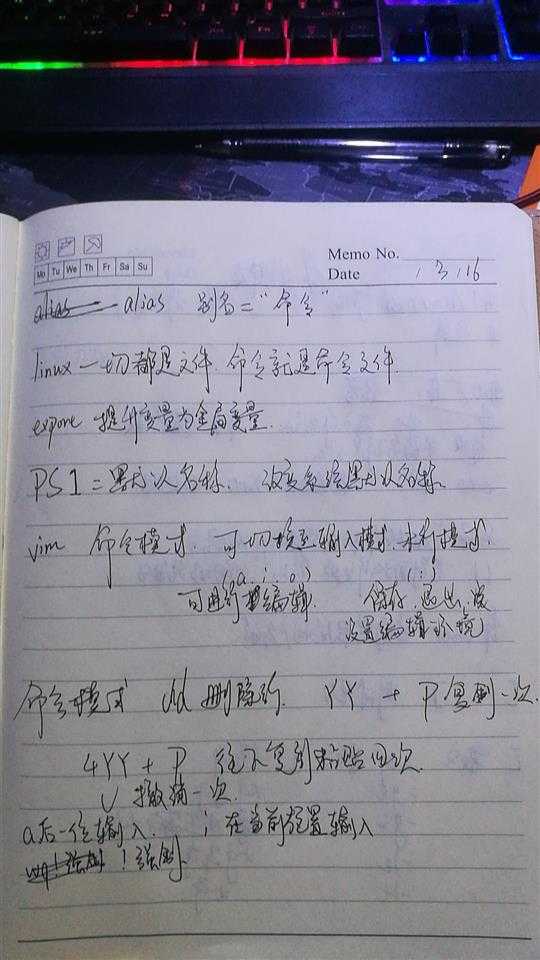 Memo No.
Mo Tu We Th Fr Sa Su
Date / 3 / 16
alias alias 别名="命令"
linux 一切都是文件. 命令就是命令文件.
expore 提升变量为全局变量.
PS1=默认名称. 改变系统默认名称.
vim 命令模式. 可切换至输入模式. 末行模式.
(a. i. o) (:)
可进行编辑. 保存. 退出.
设置编辑环境
命令模式 dd 删除行. YY + P 复制一次.
4YY + P 往下复制粘贴四次.
U 撤销一次.
a后一位输入. i 在当前位置输入
wq! 强制 ! 强制.